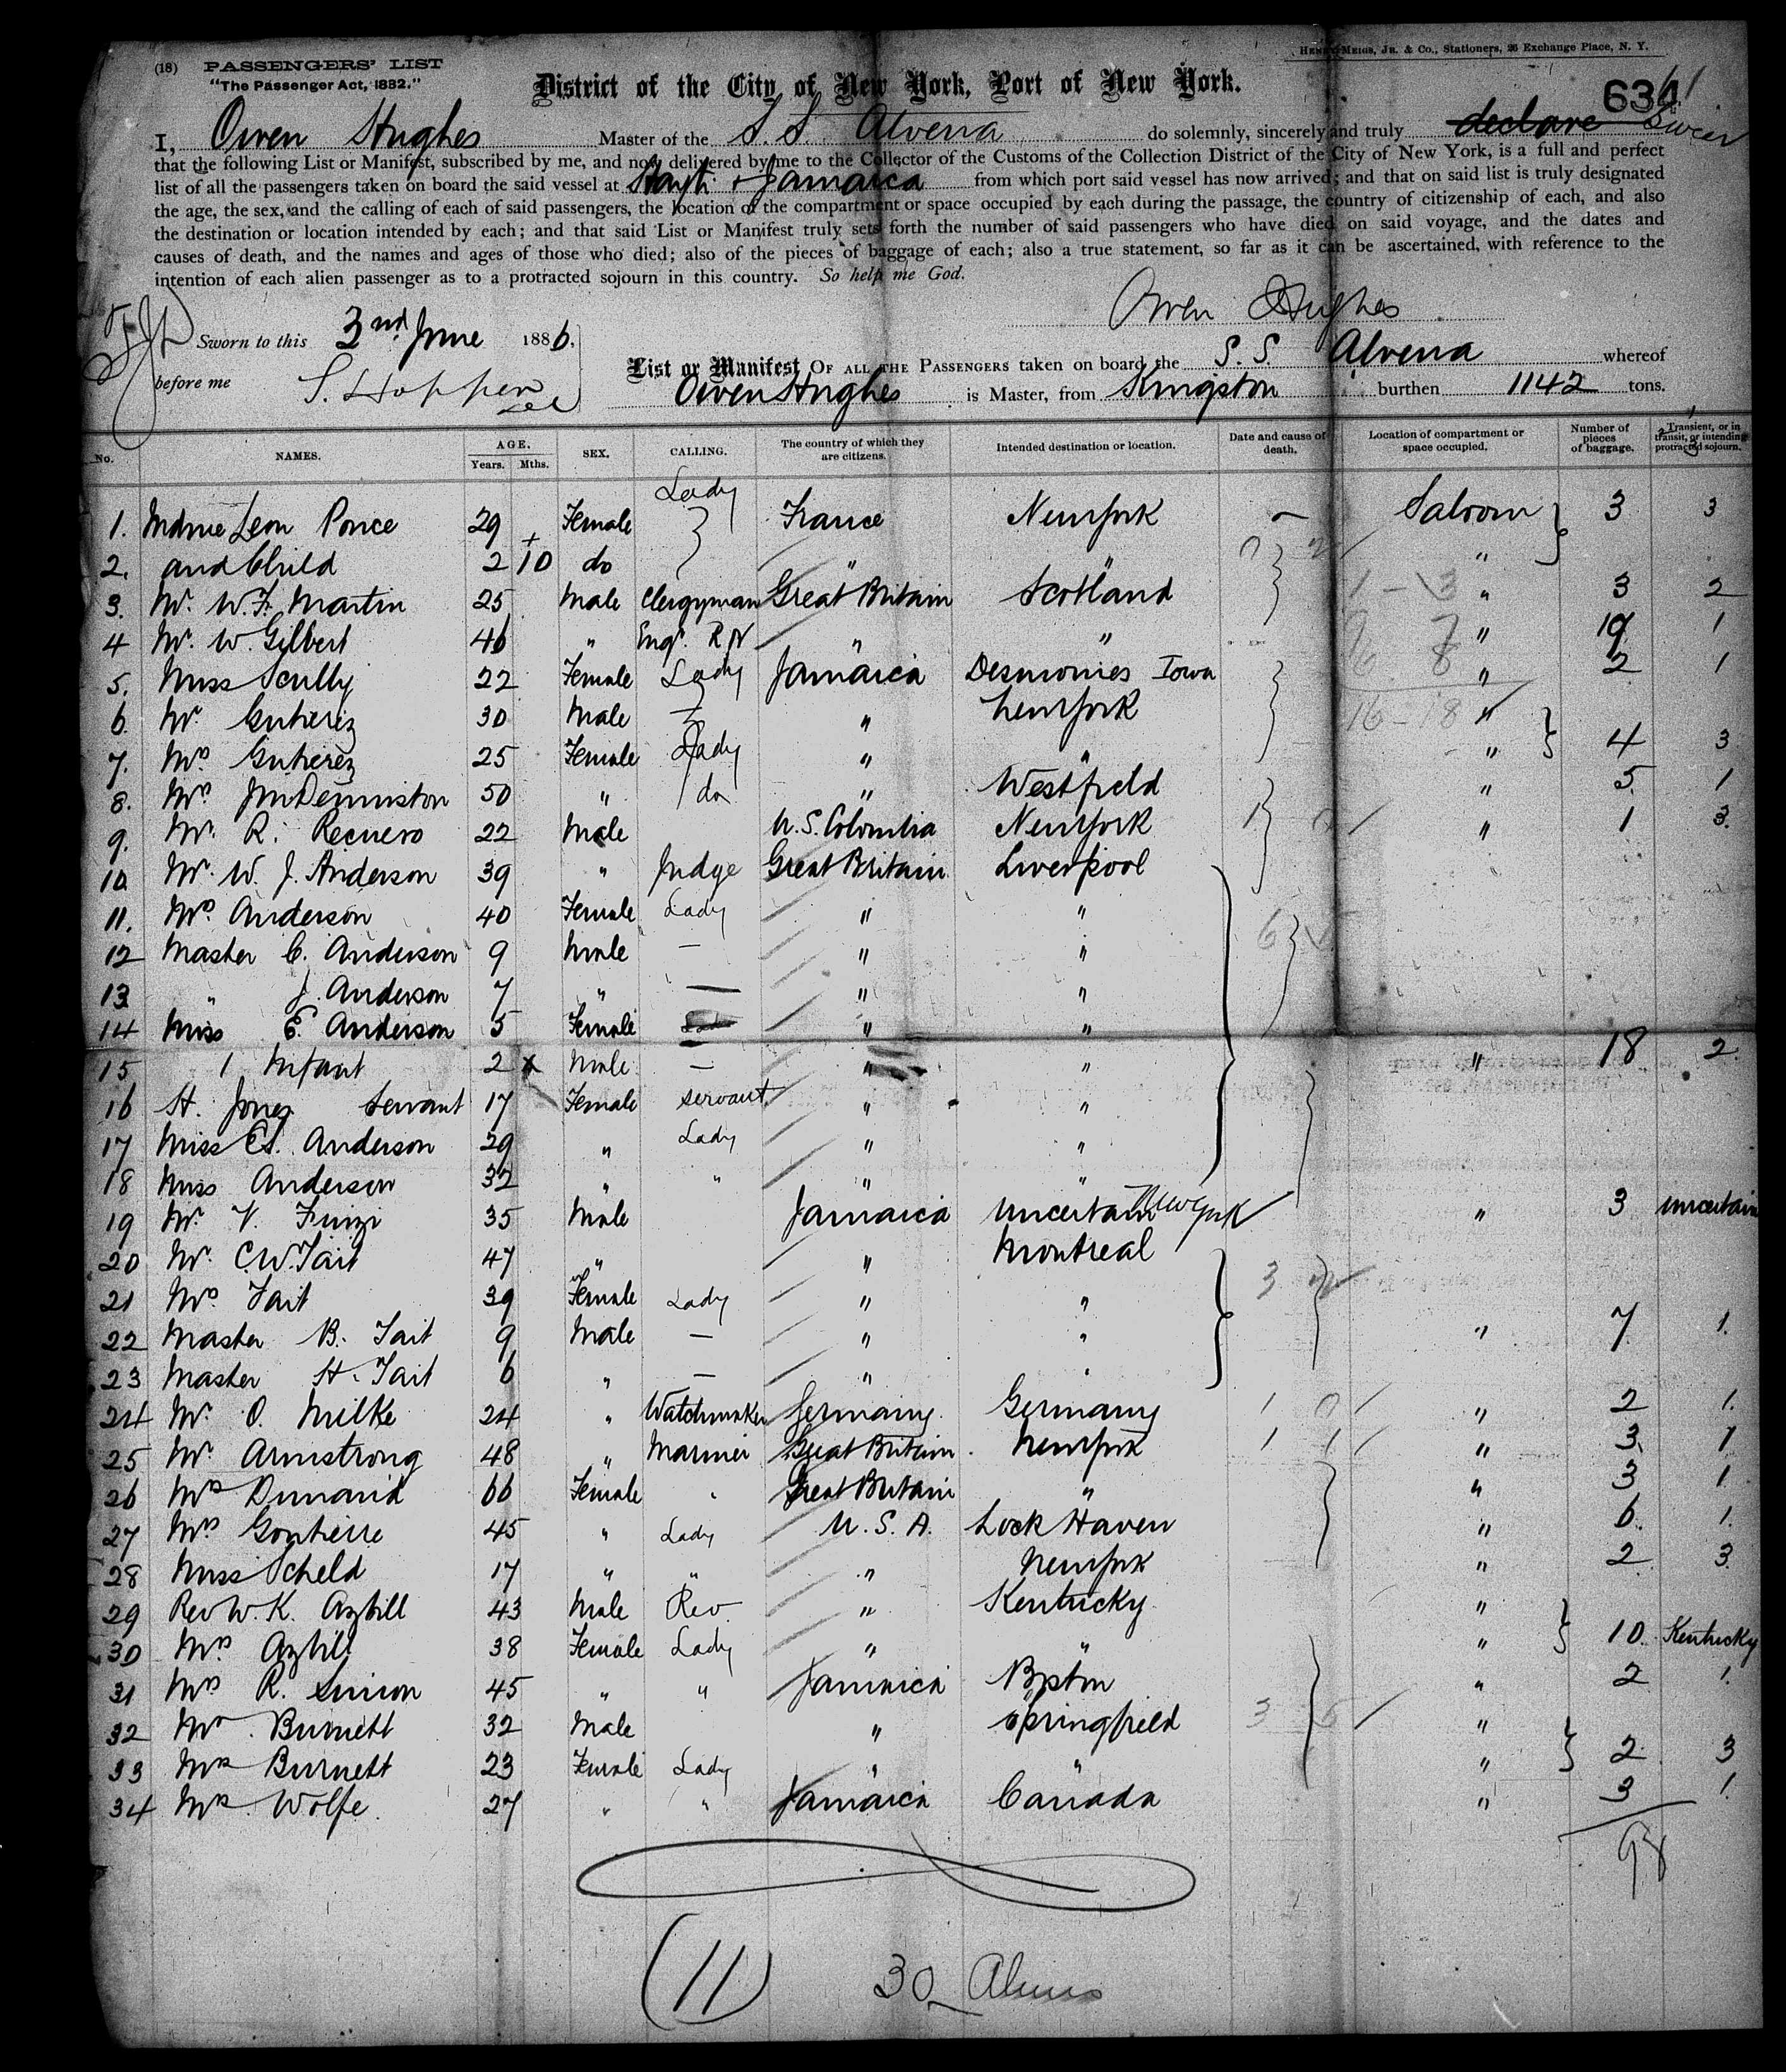 (18) PASSENGERS' LIST
"The Passenger Act, 1882."
HENRY MEIGS, JR. & CO., Stationers, 26 Exchange Place, N. Y.
District of the City of New York, Port of New York.
634
I, Owen Hughes Master of the S. S. Alvena do solemnly, sincerely and truly declare swear
that the following List or Manifest, subscribed by me, and now delivered by me to the Collector of the Customs of the Collection District of the City of New York, is a full and perfect
list of all the passengers taken on board the said vessel at Hayti & Jamaica from which port said vessel has now arrived; and that on said list is truly designated
the age, the sex, and the calling of each of said passengers, the location of the compartment or space occupied by each during the passage, the country of citizenship of each, and also
the destination or location intended by each; and that said List or Manifest truly sets forth the number of said passengers who have died on said voyage, and the dates and
causes of death, and the names and ages of those who died; also of the pieces of baggage of each; also a true statement, so far as it can be ascertained, with reference to the
intention of each alien passenger as to a protracted sojourn in this country. So help me God.
Owen Hughes
Sworn to this 3rd June 1886.
before me S. Hopper
List or Manifest OF ALL THE PASSENGERS taken on board the S. S. Alvena whereof
Owen Hughes is Master, from Kingston burthen 1142 tons.
No. NAMES. AGE. Years. Mths. SEX. CALLING. The country of which they are citizens. Intended destination or location. Date and cause of death. Location of compartment or space occupied. Number of pieces of baggage. Transient, or in transit, or intending protracted sojourn.
1. Mdme Leon Ponce 29 Female Lady France New York Saloon 3 3
2. and Child 2 10 do " " "
3. Mr. W. F. Martin 25 Male Clergyman Great Britain Scotland " 3 2
4 Mr. W Gilbert 46 " Engr. R N " " " 19 1
5. Miss Scully 22 Female Lady Jamaica Desmoines Iowa " 2 1
6. Mr. Gutierez 30 Male — " New York "
7. Mrs. Gutierez 25 Female Lady " " " 4 3
8. Mrs. Jn Denniston 50 " do " Westfield " 5 1
9. Mr. R. Recuero 22 Male U. S. Colombia New York " 1 3.
10 Mr. W. J. Anderson 39 " Judge Great Britain Liverpool
11. Mrs Anderson 40 Female Lady " "
12 Master C. Anderson 9 Male — " "
13 " J. Anderson 7 " — " "
14 Miss E. Anderson 5 Female " "
15 1 Infant 2 x Male — " " " 18 2.
16 H. Jones Servant 17 Female servant " "
17 Miss Anderson 29 " Lady " "
18 Miss Anderson 32 " " " "
19 Mr. V. Finzi 35 Male Jamaica Uncertain New York " 3 uncertain
20 Mr. C W. Tait 47 " " Montreal
21 Mrs Tait 39 Female Lady " "
22 Master B. Tait 9 Male — " " " 7 1.
23 Master H. Tait 6 " — " "
24 Mr. O. Milke 24 " Watchmaker Germany Germany " 2 1.
25 Mr. Armstrong 48 " Mariner Great Britain New York " 3. 1
26 Mrs 66 Female Great Britain " " 3 1
27 Mrs 45 " Lady U. S. A. Lock Haven " 6 1.
28 Miss Scheld 17 " " " New York " 2 3
29 Rev W. K. Azbill 43 Male Rev. " Kentucky "
30 Mrs. Azbill 38 Female Lady " " " 10. Kentucky
31 Mrs R. Simon 45 " " Jamaica Boston " 2 1.
32 Mr. Burnett 32 Male " Springfield "
33 Mrs Burnett 23 Female Lady " " " 2 3
34 Mrs. Wolfe. 27 " " Jamaica Canada " 3 1.
98
(11) 30 Aliens